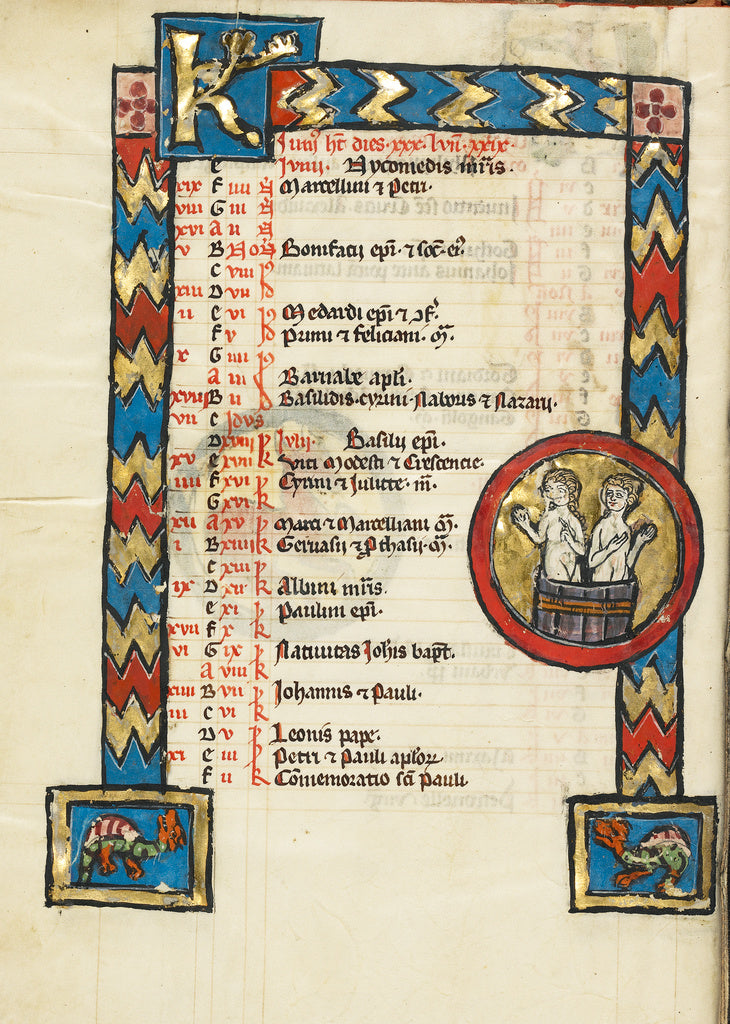 K
Juni' ht dies xxx. lun xxix.
e Junii. Nycomedis mris.
xix F iiii N Marcellini ⁊ Petri.
viii G iii N
xvi A ii N
v B Non Bonifacii epi. ⁊ soc. ei'.
C viii Id
xiii D vii Id
ii E vi Id Medardi epi ⁊ ɔf.
F v Id Primi ⁊ feliciani. m.
x G iiii Id
A iii Id Barnabe apli.
xviii B ii Id Basilidis. cyrini. Naboris ⁊ Nazarii.
vii C Idus
D xviii kl Julii. Basilii epi.
xv e xvii kl Viti Modesti ⁊ Crescencie.
iiii F xvi kl Cyrini ⁊ Julitte. m.
G xv k
xii A xv kl Marci ⁊ Marcelliani m.
i B xiiii kl Geruasii ⁊ Pthasii. m.
C xiii kl
ix D xii kl Albini mris.
e xi kl Paulini epi.
xvii F x kl
vi G ix kl Natiuitas Johis bapt.
A viii kl
xiiii B vii kl Johannis ⁊ Pauli.
iii C vi kl
D v kl Leonis pape.
xi e iii kl Petri ⁊ Pauli aplor
F ii kl Comemoratio sci Pauli